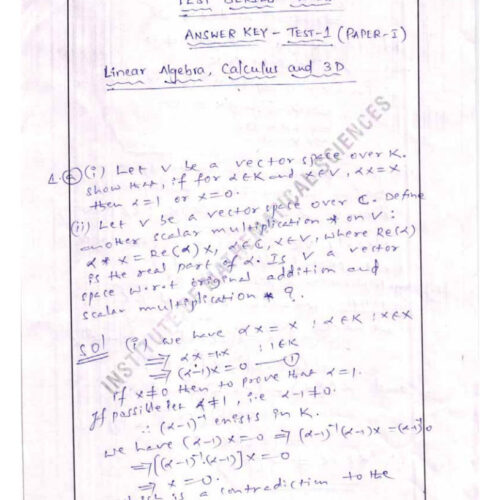 TEST SERIES
ANSWER KEY - TEST-1 (PAPER-I)
Linear Algebra, Calculus and 3D
INSTITUTE OF MATHEMATICAL SCIENCES
1. (a) (i) Let V be a vector space over K.
show that, if for α∈K and x∈V, αx=x
then α=1 or x=0.
(ii) Let V be a vector space over ℂ. Define
another scalar multiplication * on V:
α * x = Re(α) x, α∈ℂ, x∈V, where Re(α)
is the real part of α. Is V a vector
space w.r.t original addition and
scalar multiplication * ?
Sol (i) we have αx = x ; α∈K ; x∈X
⇒ αx = 1.x ; 1∈K
⇒ (α-1)x = 0 — (1)
if x≠0 then to prove that α=1.
If possible let α≠1, i.e α-1≠0.
∴ (α-1)⁻¹ exists in K.
we have (α-1)x=0 ⇒ (α-1)⁻¹(α-1)x = (α-1)⁻¹0
⇒ [(α-1)⁻¹(α-1)]x = 0
⇒ x = 0.
which is a contradiction to the